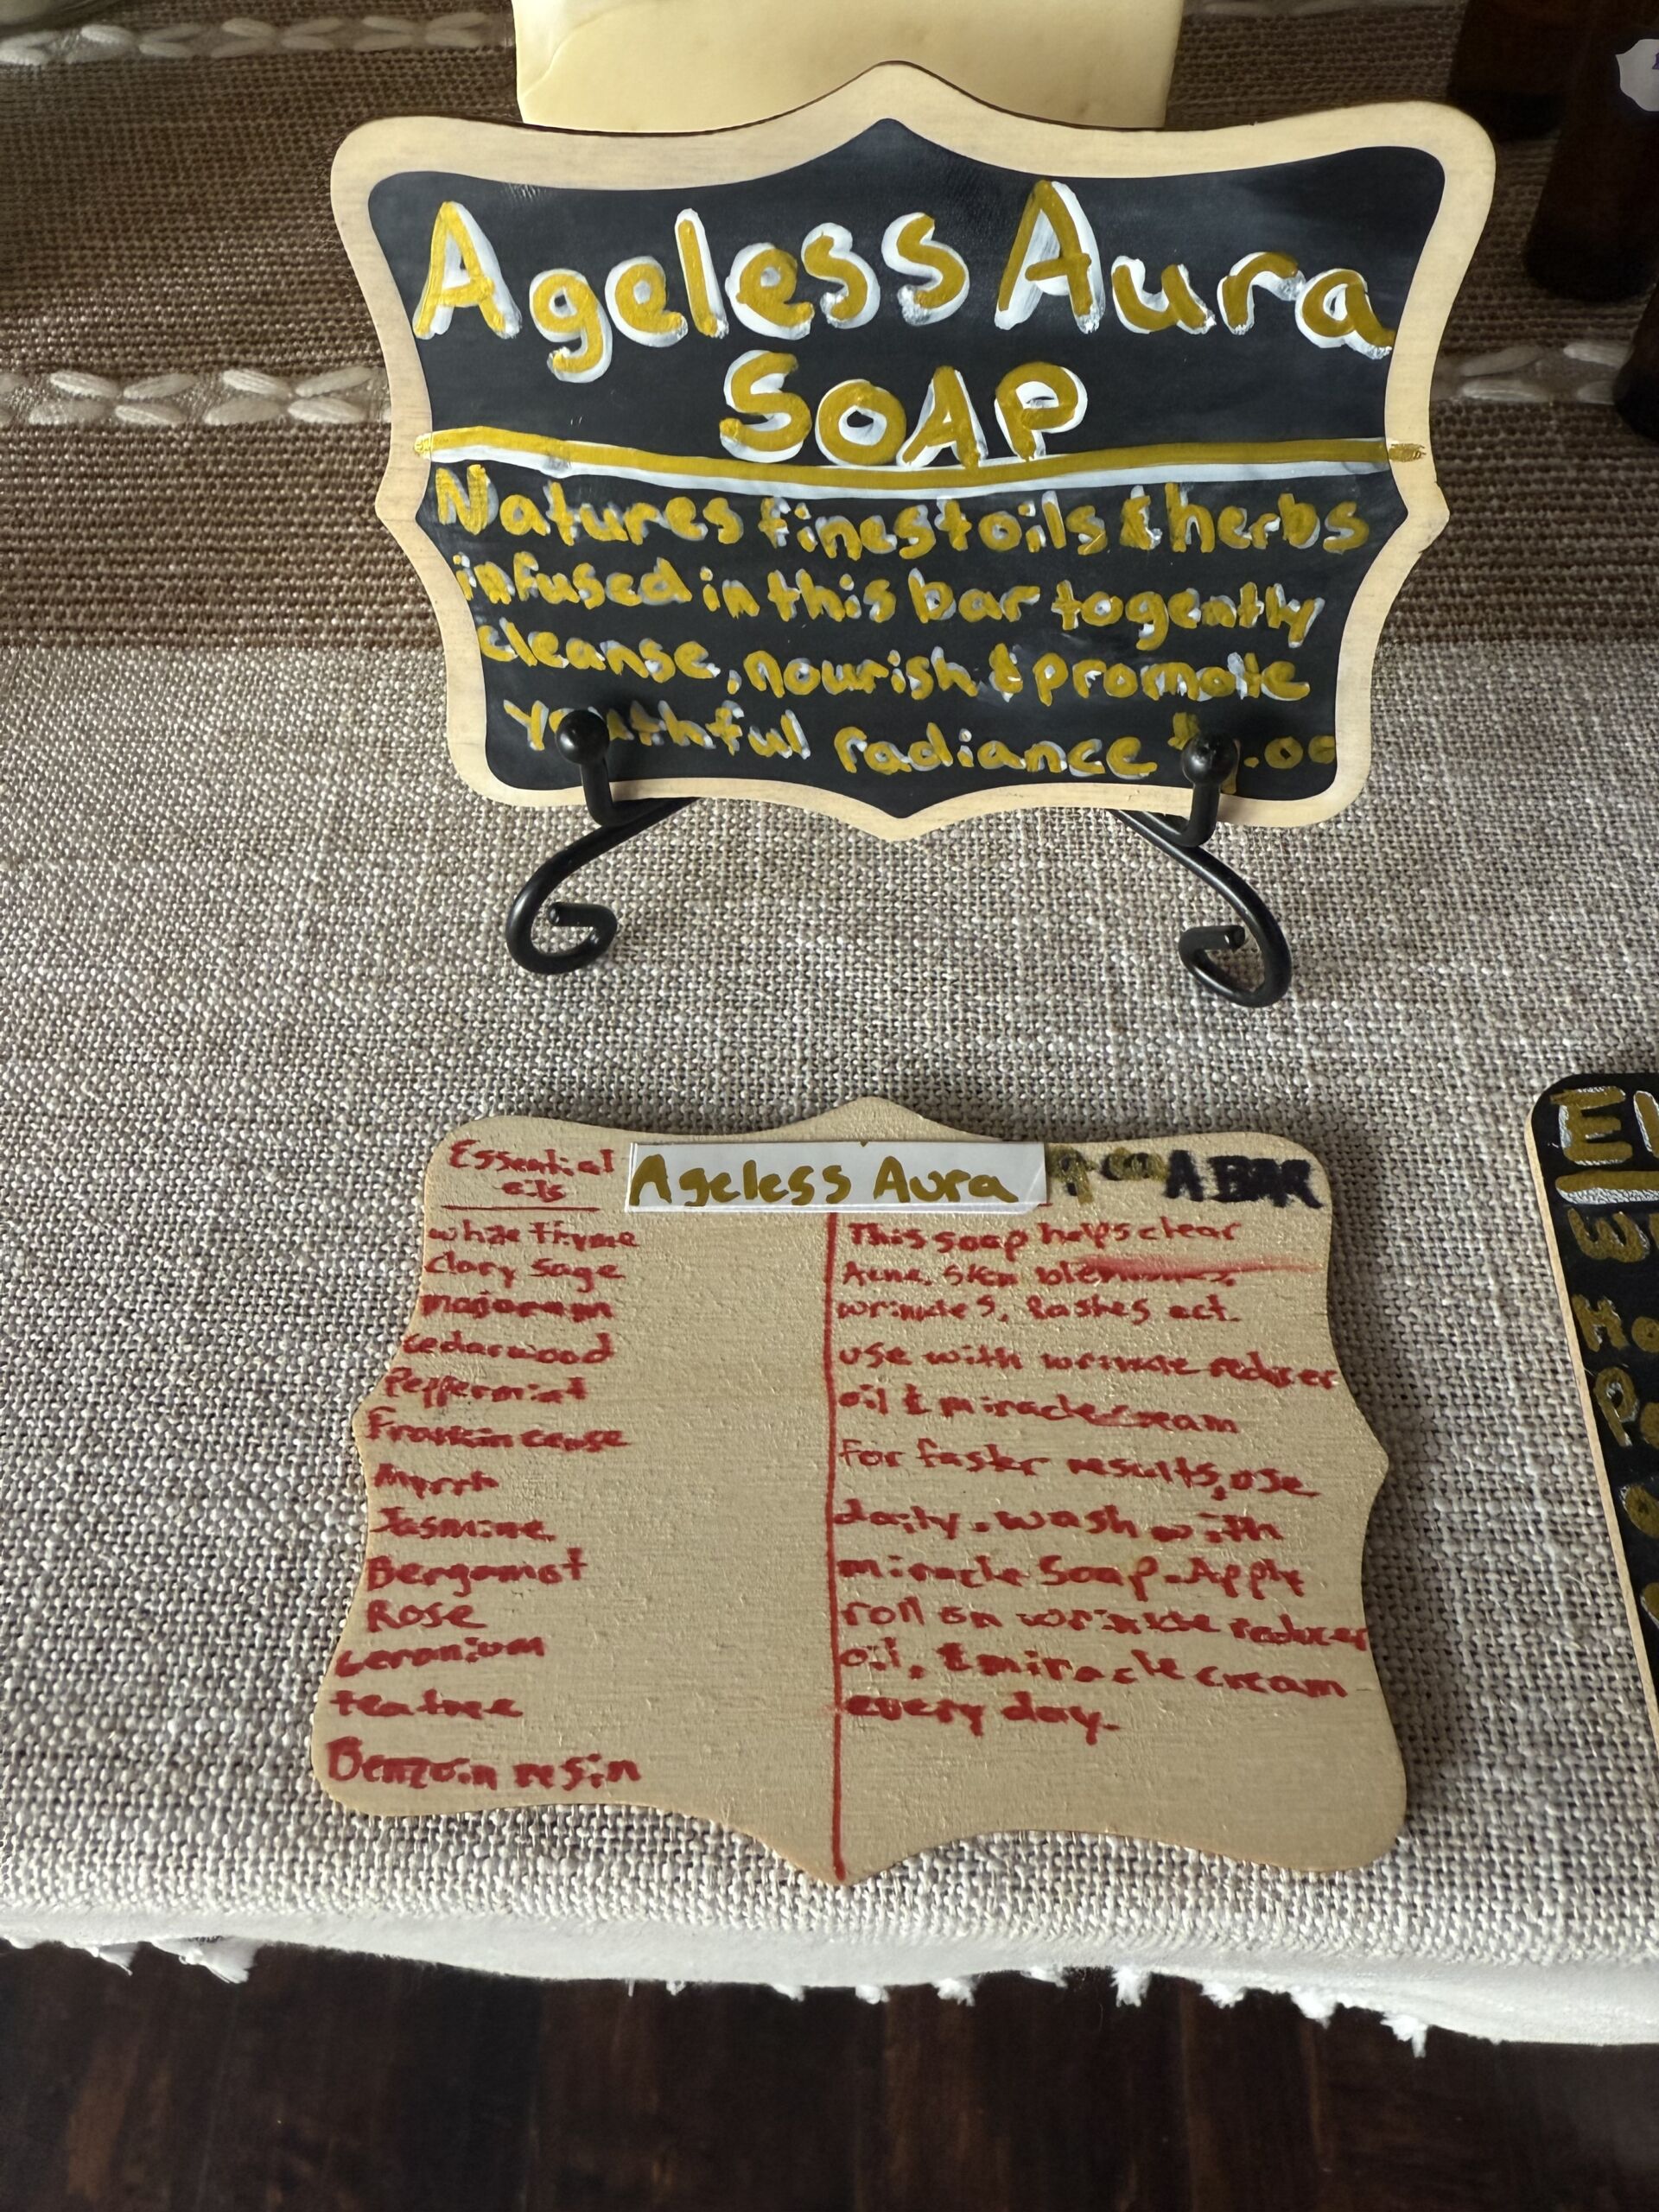 Ageless Aura
SOAP
Natures finest oils & herbs
infused in this bar to gently
cleanse, nourish & promote
youthful radiance
Essential
oils
white thyme
Clary sage
majoram
cedarwood
Peppermint
Frankincense
Myrrh
Jasmine
Bergamot
Rose
Geranium
teatree
Benzoin resin
Ageless Aura
A BAR
This soap helps clear
Acne, skin blemishes,
wrinkles, Rashes ect.
use with wrinkle reducer
oil & miracle cream
for faster results, use
daily. wash with
miracle Soap. Apply
roll on wrinkle reducer
oil, & miracle cream
every day.
El